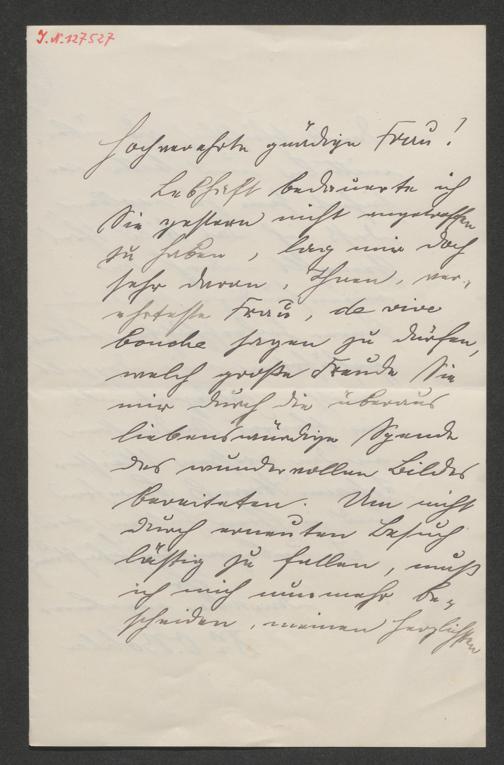 J.N.127527
Hochverehrte gnädige Frau!
Lebhaft bedauerte ich
Sie gestern nicht angetroffen
zu haben, lag mir doch
sehr daran, Ihnen, ver-
ehrteste Frau, de vive
bouche sagen zu dürfen,
welch große Freude Sie
mir durch die überaus
liebenswürdige Spende
des wundervollen Bildes
bereiteten. Um nicht
durch erneuten Besuch
lästig zu fallen, muß
ich mich nunmehr be-
scheiden, meinen herzlichsten